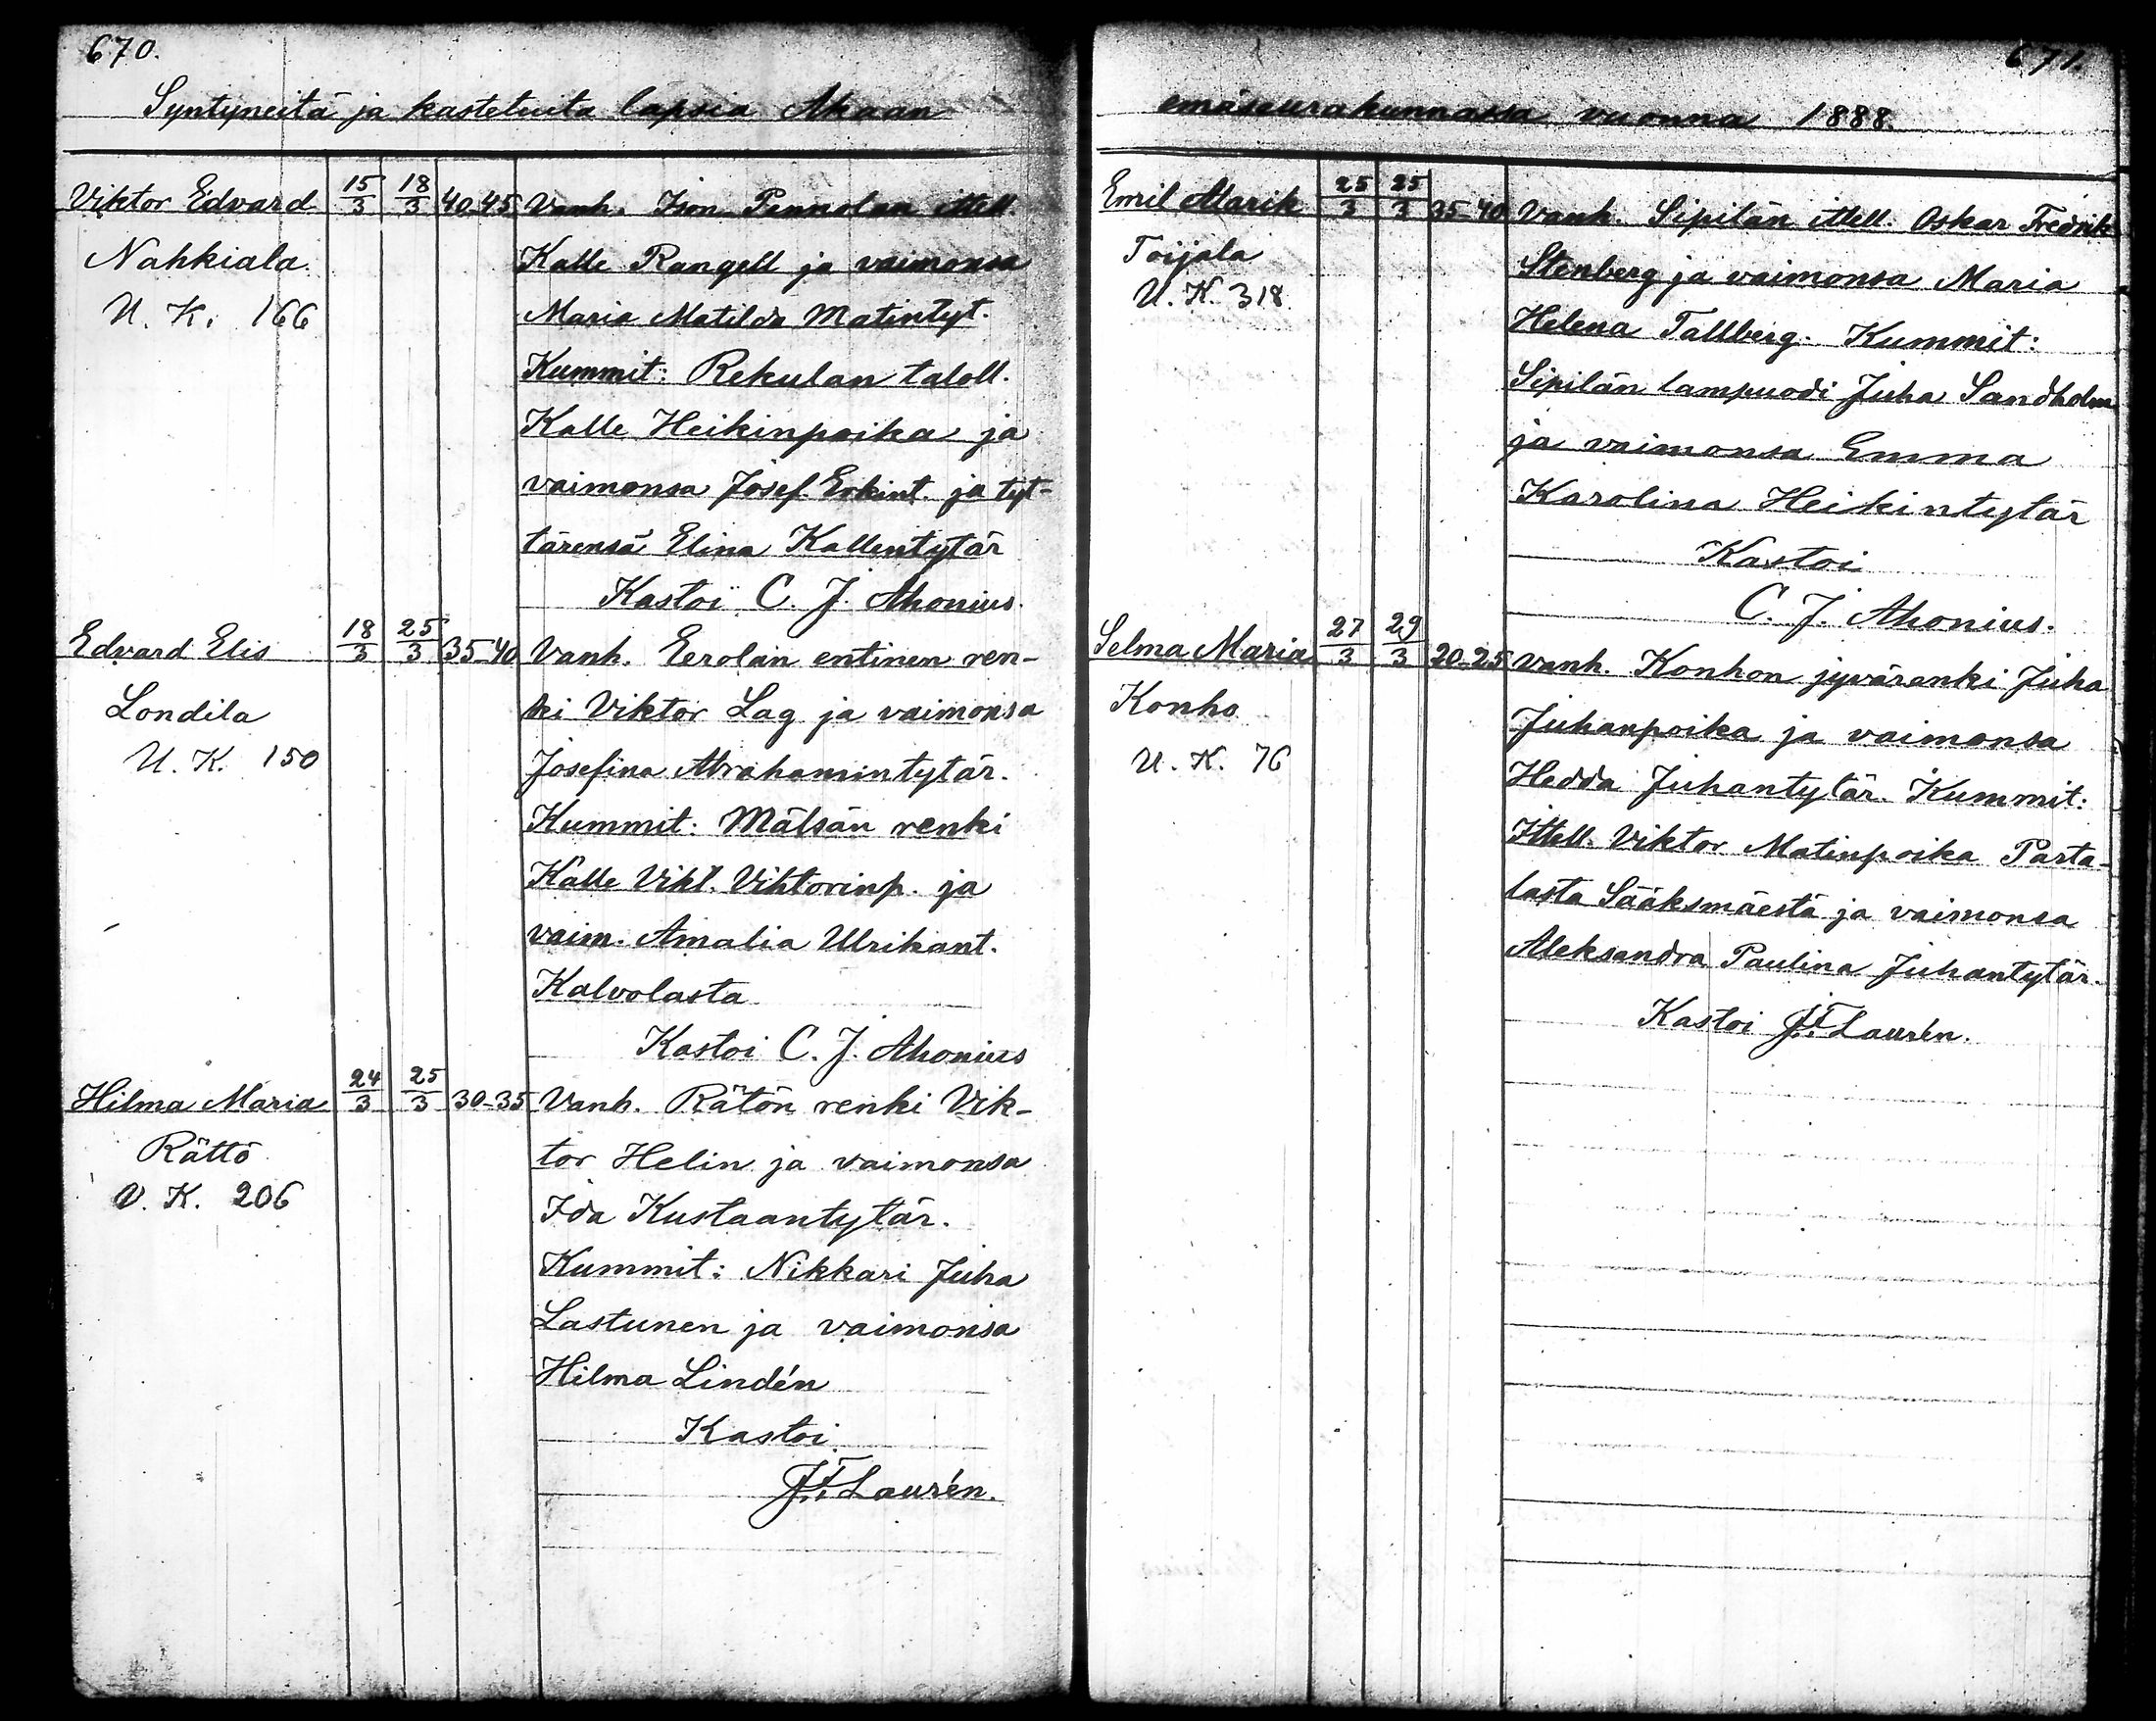 670.
Syntyneitä ja kastetuita lapsia Akaan
Viktor Edvard 15/3 18/3 40-45 Vanh. Ison Pennolan ittell.
Nahkiala Kalle Rangell ja vaimonsa
U. K. 166 Maria Matilda Matintyt.
Kummit: Rekulan taloll.
Kalle Heikinpoika ja
vaimonsa Josef. Erkint. ja tyt-
tärensä Elina Kallentytär
Kastoi C. J. Ahonius.
Edvard Elis 18/3 25/3 35-40 Vanh. Eerolan entinen ren-
Londila ki Viktor Lag ja vaimonsa
U. K. 150 Josefina Abrahamintytär.
Kummit: Mälsän renki
Kalle Vikt. Vihtorinp. ja
vaim. Amalia Ulrikant.
Kalvolasta
Kastoi C. J. Ahonius
Hilma Maria 24/3 25/3 30-35 Vanh. Rätön renki Vik-
Rättö tor Helin ja vaimonsa
V. K. 206 Ida Kustaantytär.
Kummit: Nikkari Juha
Lastunen ja vaimonsa
Hilma Lindén
Kastoi
J. F. Laurén.
671.
emäseurakunnassa vuonna 1888.
Emil Marik 25/3 25/3 35-40 Vanh. Sipilän ittell. Oskar Fredrik
Toijala Stenberg ja vaimonsa Maria
U. K. 318 Helena Tallberg. Kummit:
Sipilän lampuodi Juha Sandholm
ja vaimonsa Emma
Karolina Heikintytär
Kastoi
C. J. Ahonius.
Selma Maria 27/3 29/3 20-25 Vanh. Konhon jyvärenki Juha
Konho Juhanpoika ja vaimonsa
U. K. 76 Hedda Juhantytär. Kummit:
Ittell. Viktor Matinpoika Parta-
lasta Sääksmäestä ja vaimonsa
Aleksandra Paulina Juhantytär.
Kastoi J. F. Laurén.